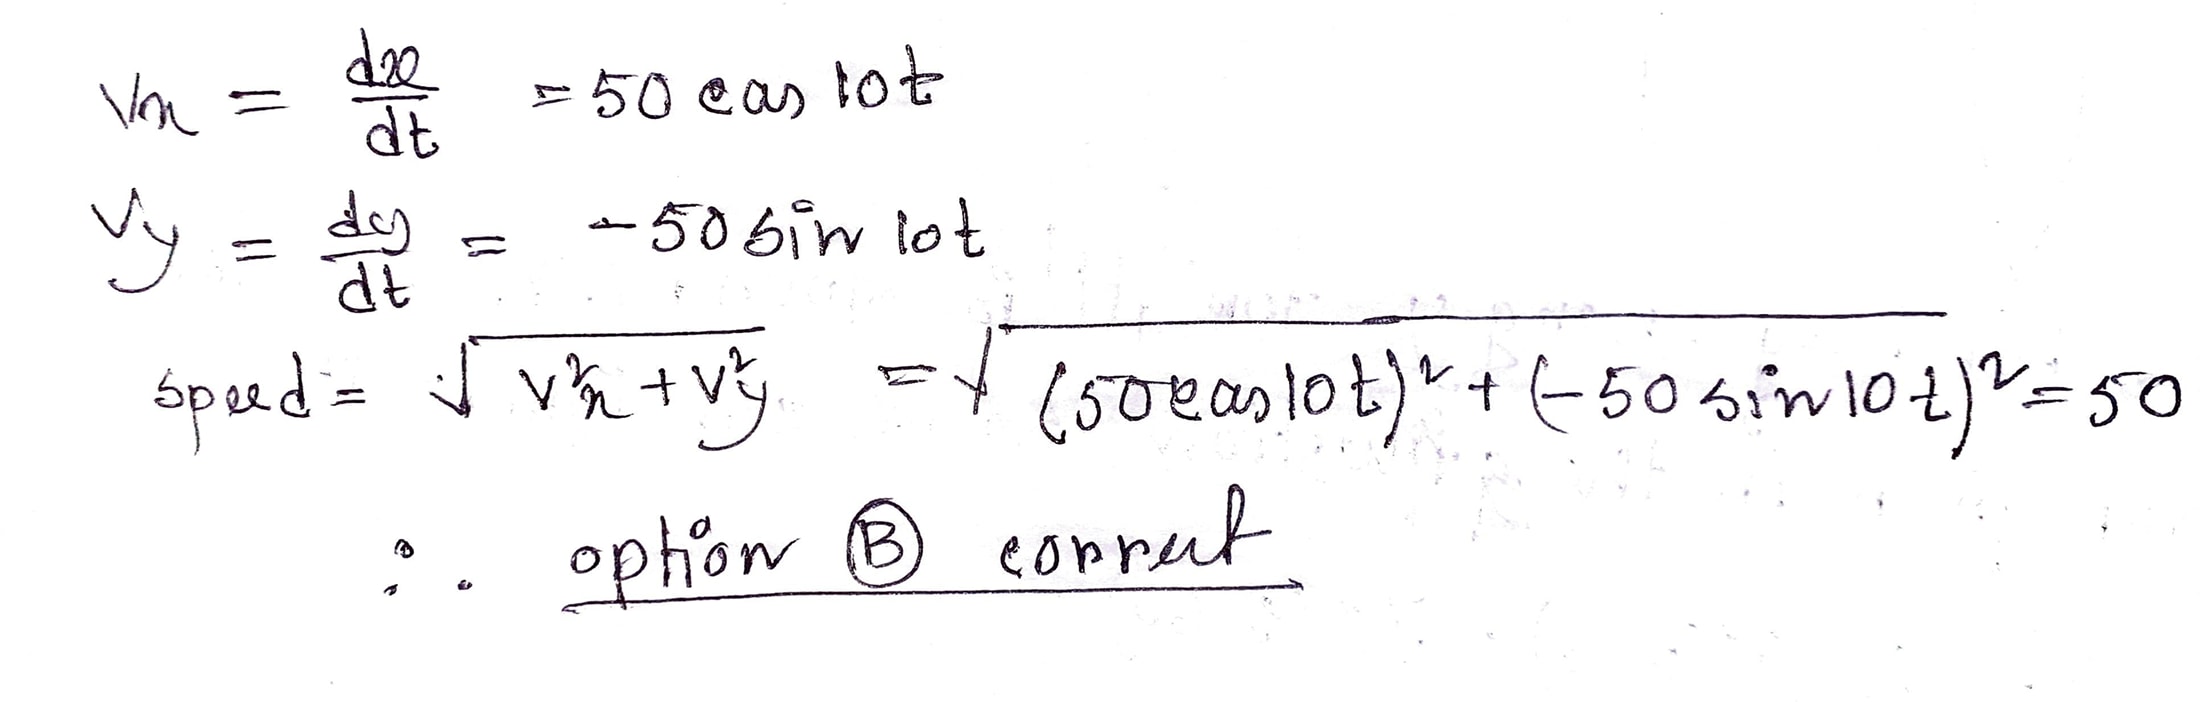 Vx = dx/dt = 50 cos 10t
Vy = dy/dt = -50 sin 10t
speed = √(v²x + v²y) = √((50 cos 10t)² + (-50 sin 10t)²) = 50
∴ option Ⓑ correct